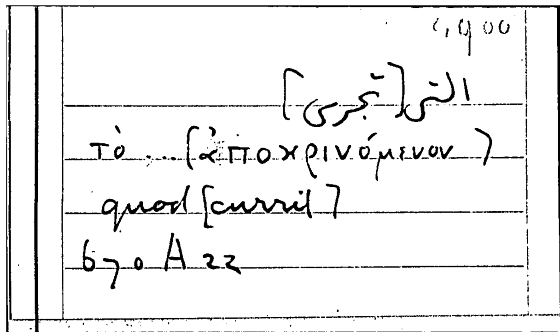 التى [تجرى]
τὸ ... [ἀποκρινόμενον]
quod [currit]
670 A 22